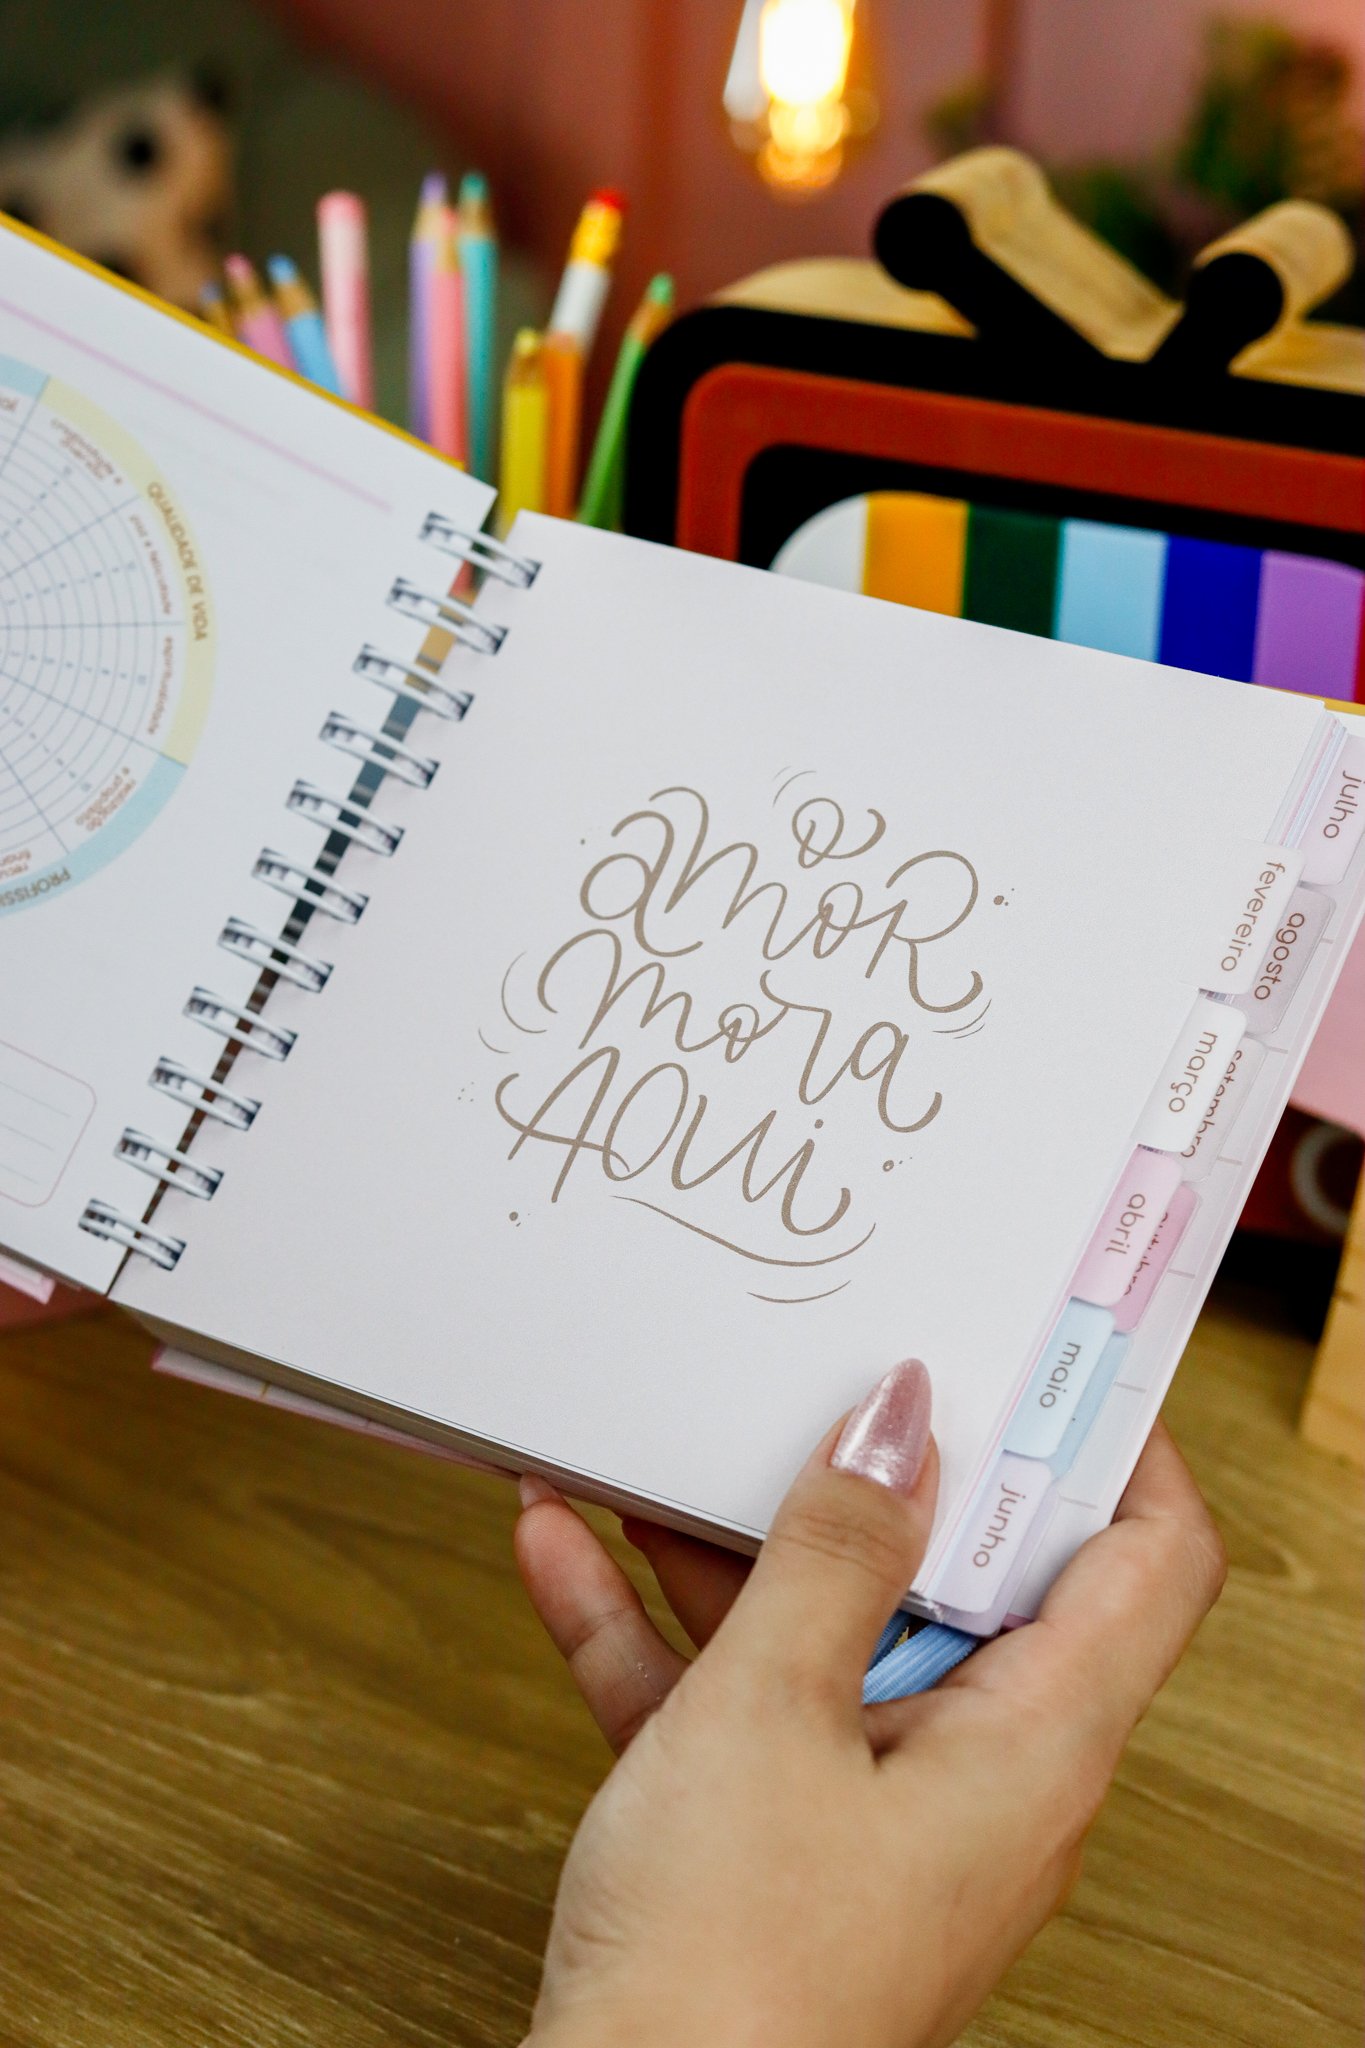 QUALIDADE DE VIDA
espiritualidade
o
amor
mora
aqui
fevereiro
março
abril
maio
junho
julho
agosto
setembro
outubro